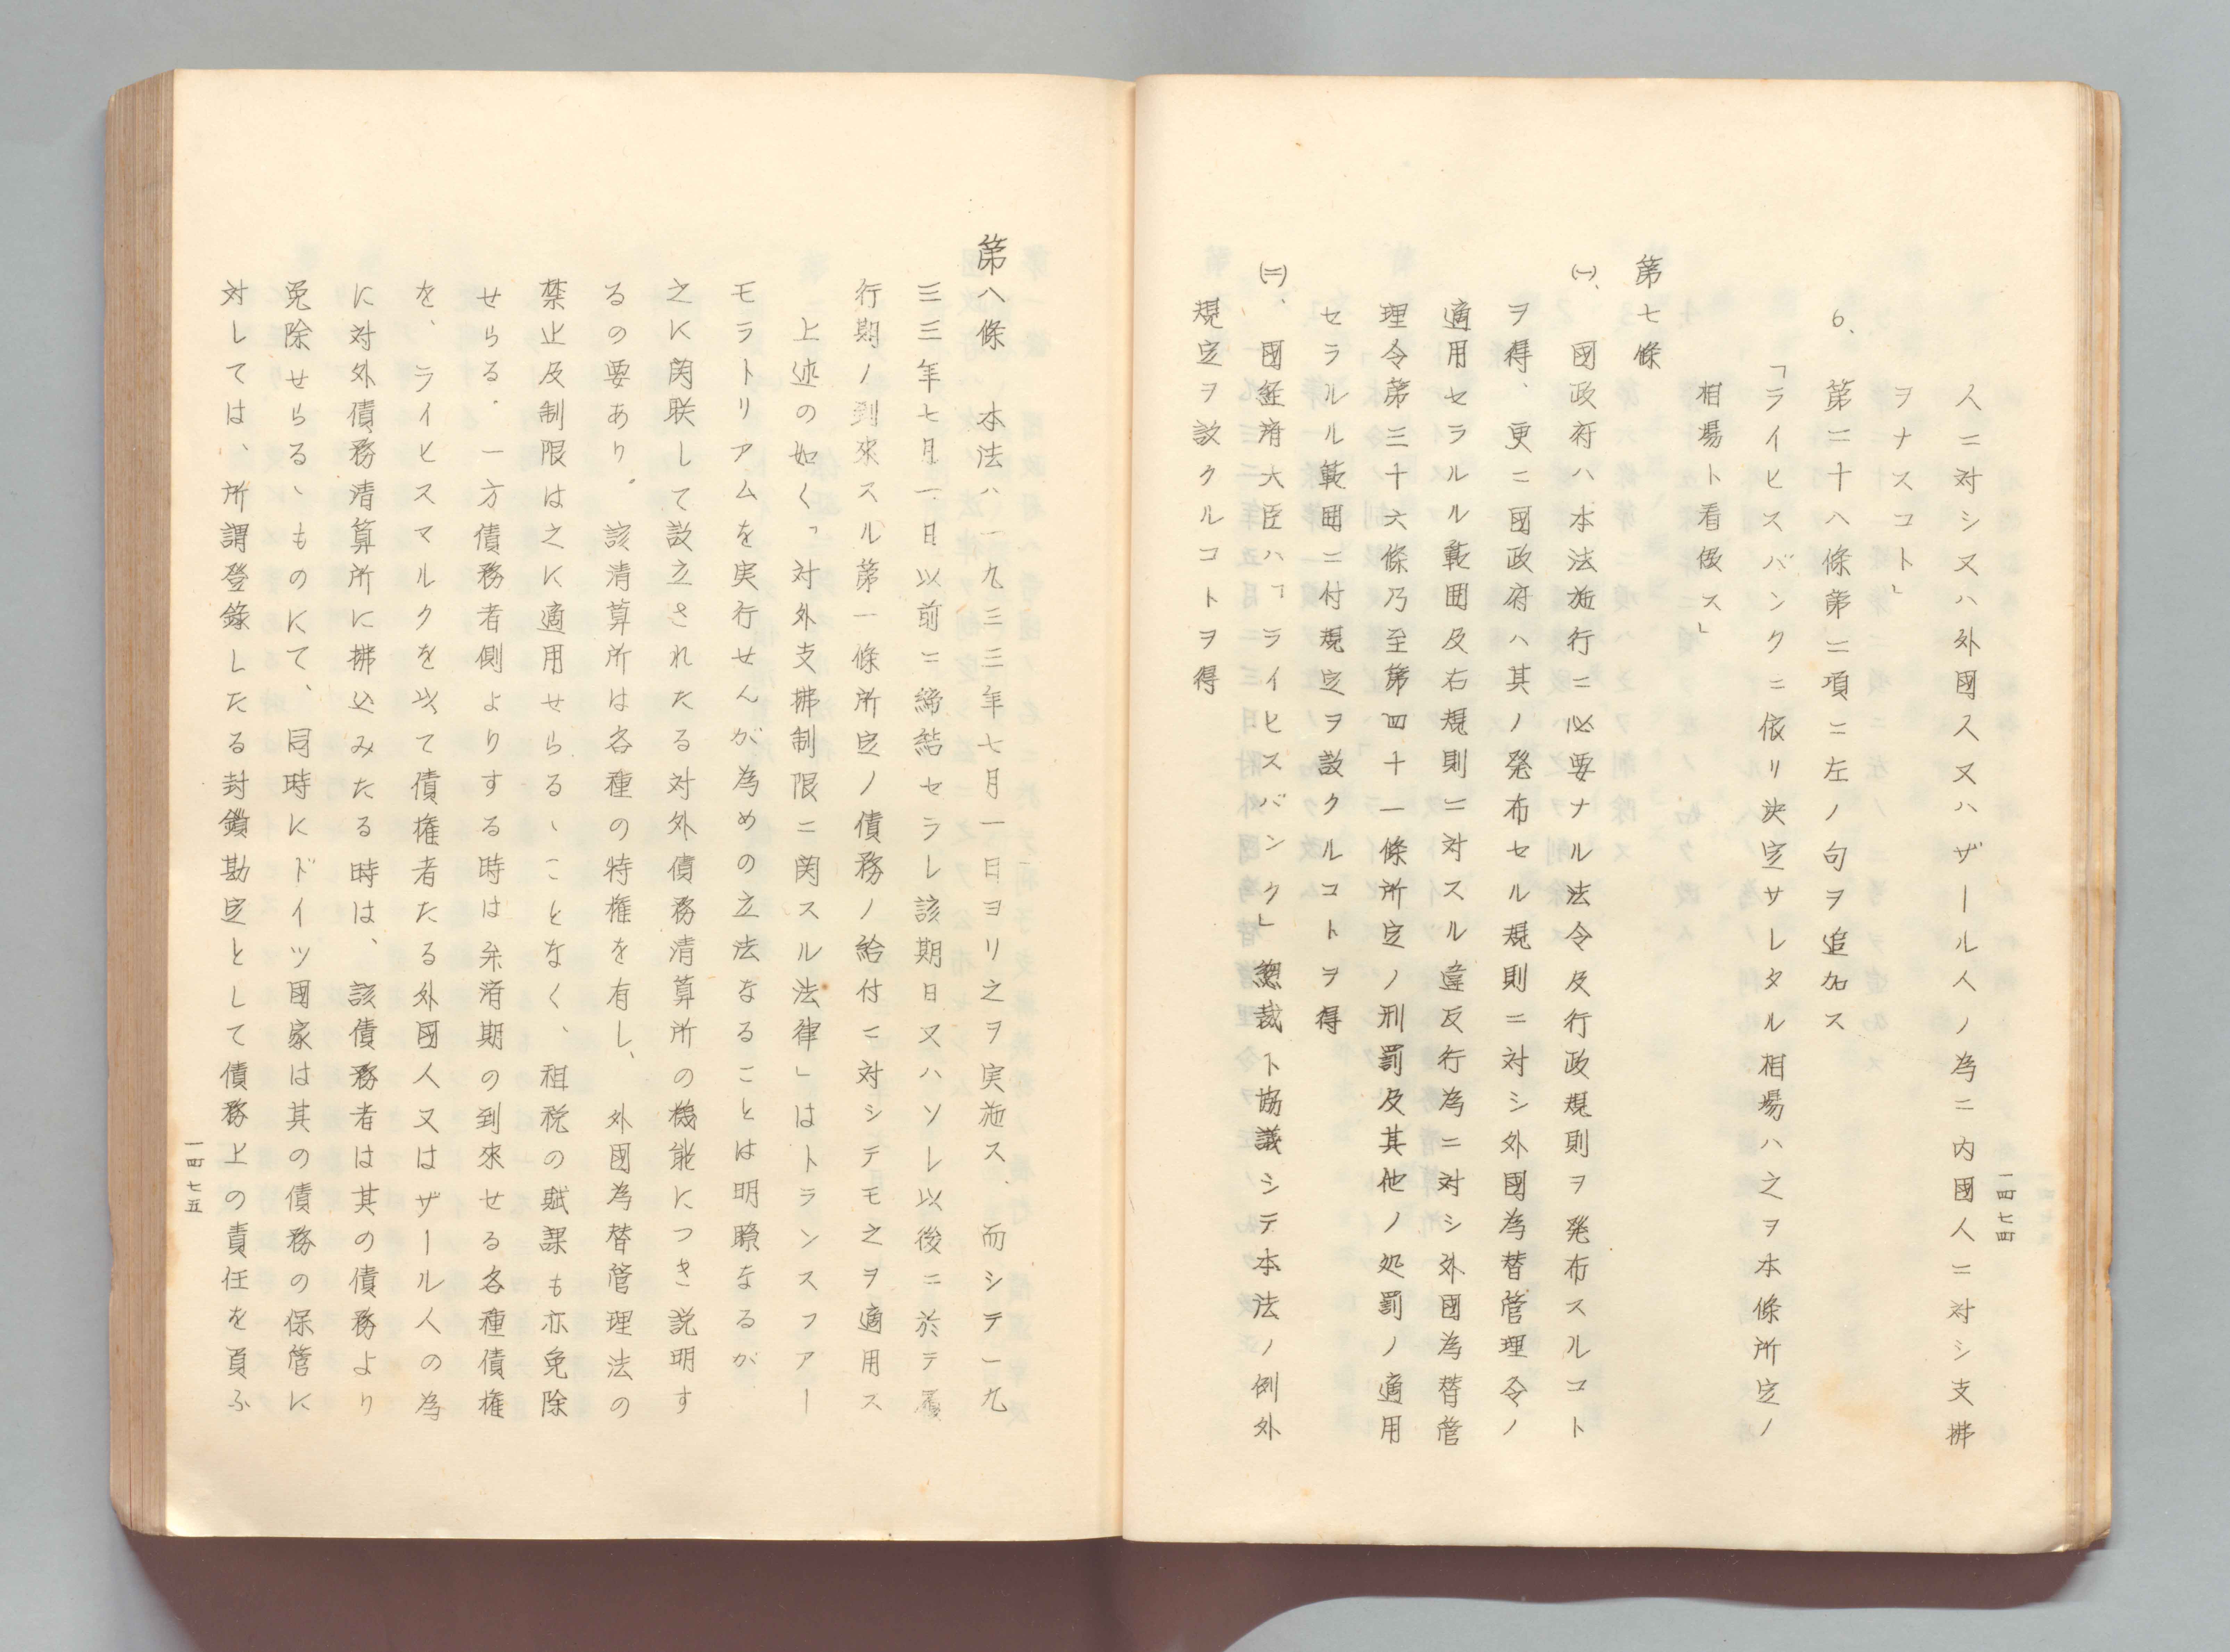 人ニ対シ又ハ外國人又ハザール人ノ為ニ内國人ニ対シ支拂
ヲナスコト」
6、第二十八條第二項ニ左ノ句ヲ追加ス
「ライヒスバンクニ依リ決定サレタル相場ハ之ヲ本條所定ノ
相場ト看做ス」
第七條
㈠、國政府ハ本法施行ニ必要ナル法令及行政規則ヲ発布スルコト
ヲ得、更ニ國政府ハ其ノ発布セル規則ニ対シ外國為替管理令ノ
適用セラルル範囲及右規則ニ対スル違反行為ニ対シ外國為替管
理令第三十六條乃至第四十一條所定ノ刑罰及其他ノ処罰ノ適用
セラルル範囲ニ付規定ヲ設クルコトヲ得
㈡、國経済大臣ハ「ライヒスバンク」総裁ト協議シテ本法ノ例外
規定ヲ設クルコトヲ得
一四七四
第八條 本法ハ一九三三年七月一日ヨリ之ヲ実施ス、而シテ一九
三三年七月一日以前ニ締結セラレ該期日又ハソレ以後ニ於テ履
行期ノ到來スル第一條所定ノ債務ノ給付ニ対シテモ之ヲ適用ス
上述の如く「対外支拂制限ニ関スル法律」はトランスファー
モラトリアムを実行せんが為めの立法なることは明瞭なるが
之に関联して設立されたる対外債務清算所の機能につき説明す
るの要あり。該清算所は各種の特権を有し、外國為替管理法の
禁止及制限は之に適用せらるゝことなく、租税の賦課も亦免除
せらる。一方債務者側よりする時は弁済期の到來せる各種債権
を、ライヒスマルクを以て債権者たる外國人又はザール人の為
に対外債務清算所に拂込みたる時は、該債務者は其の債務より
免除せらるゝものにて、同時にドイツ國家は其の債務の保管に
対しては、所謂登錄したる封鎖勘定として債務上の責任を負ふ
一四七五